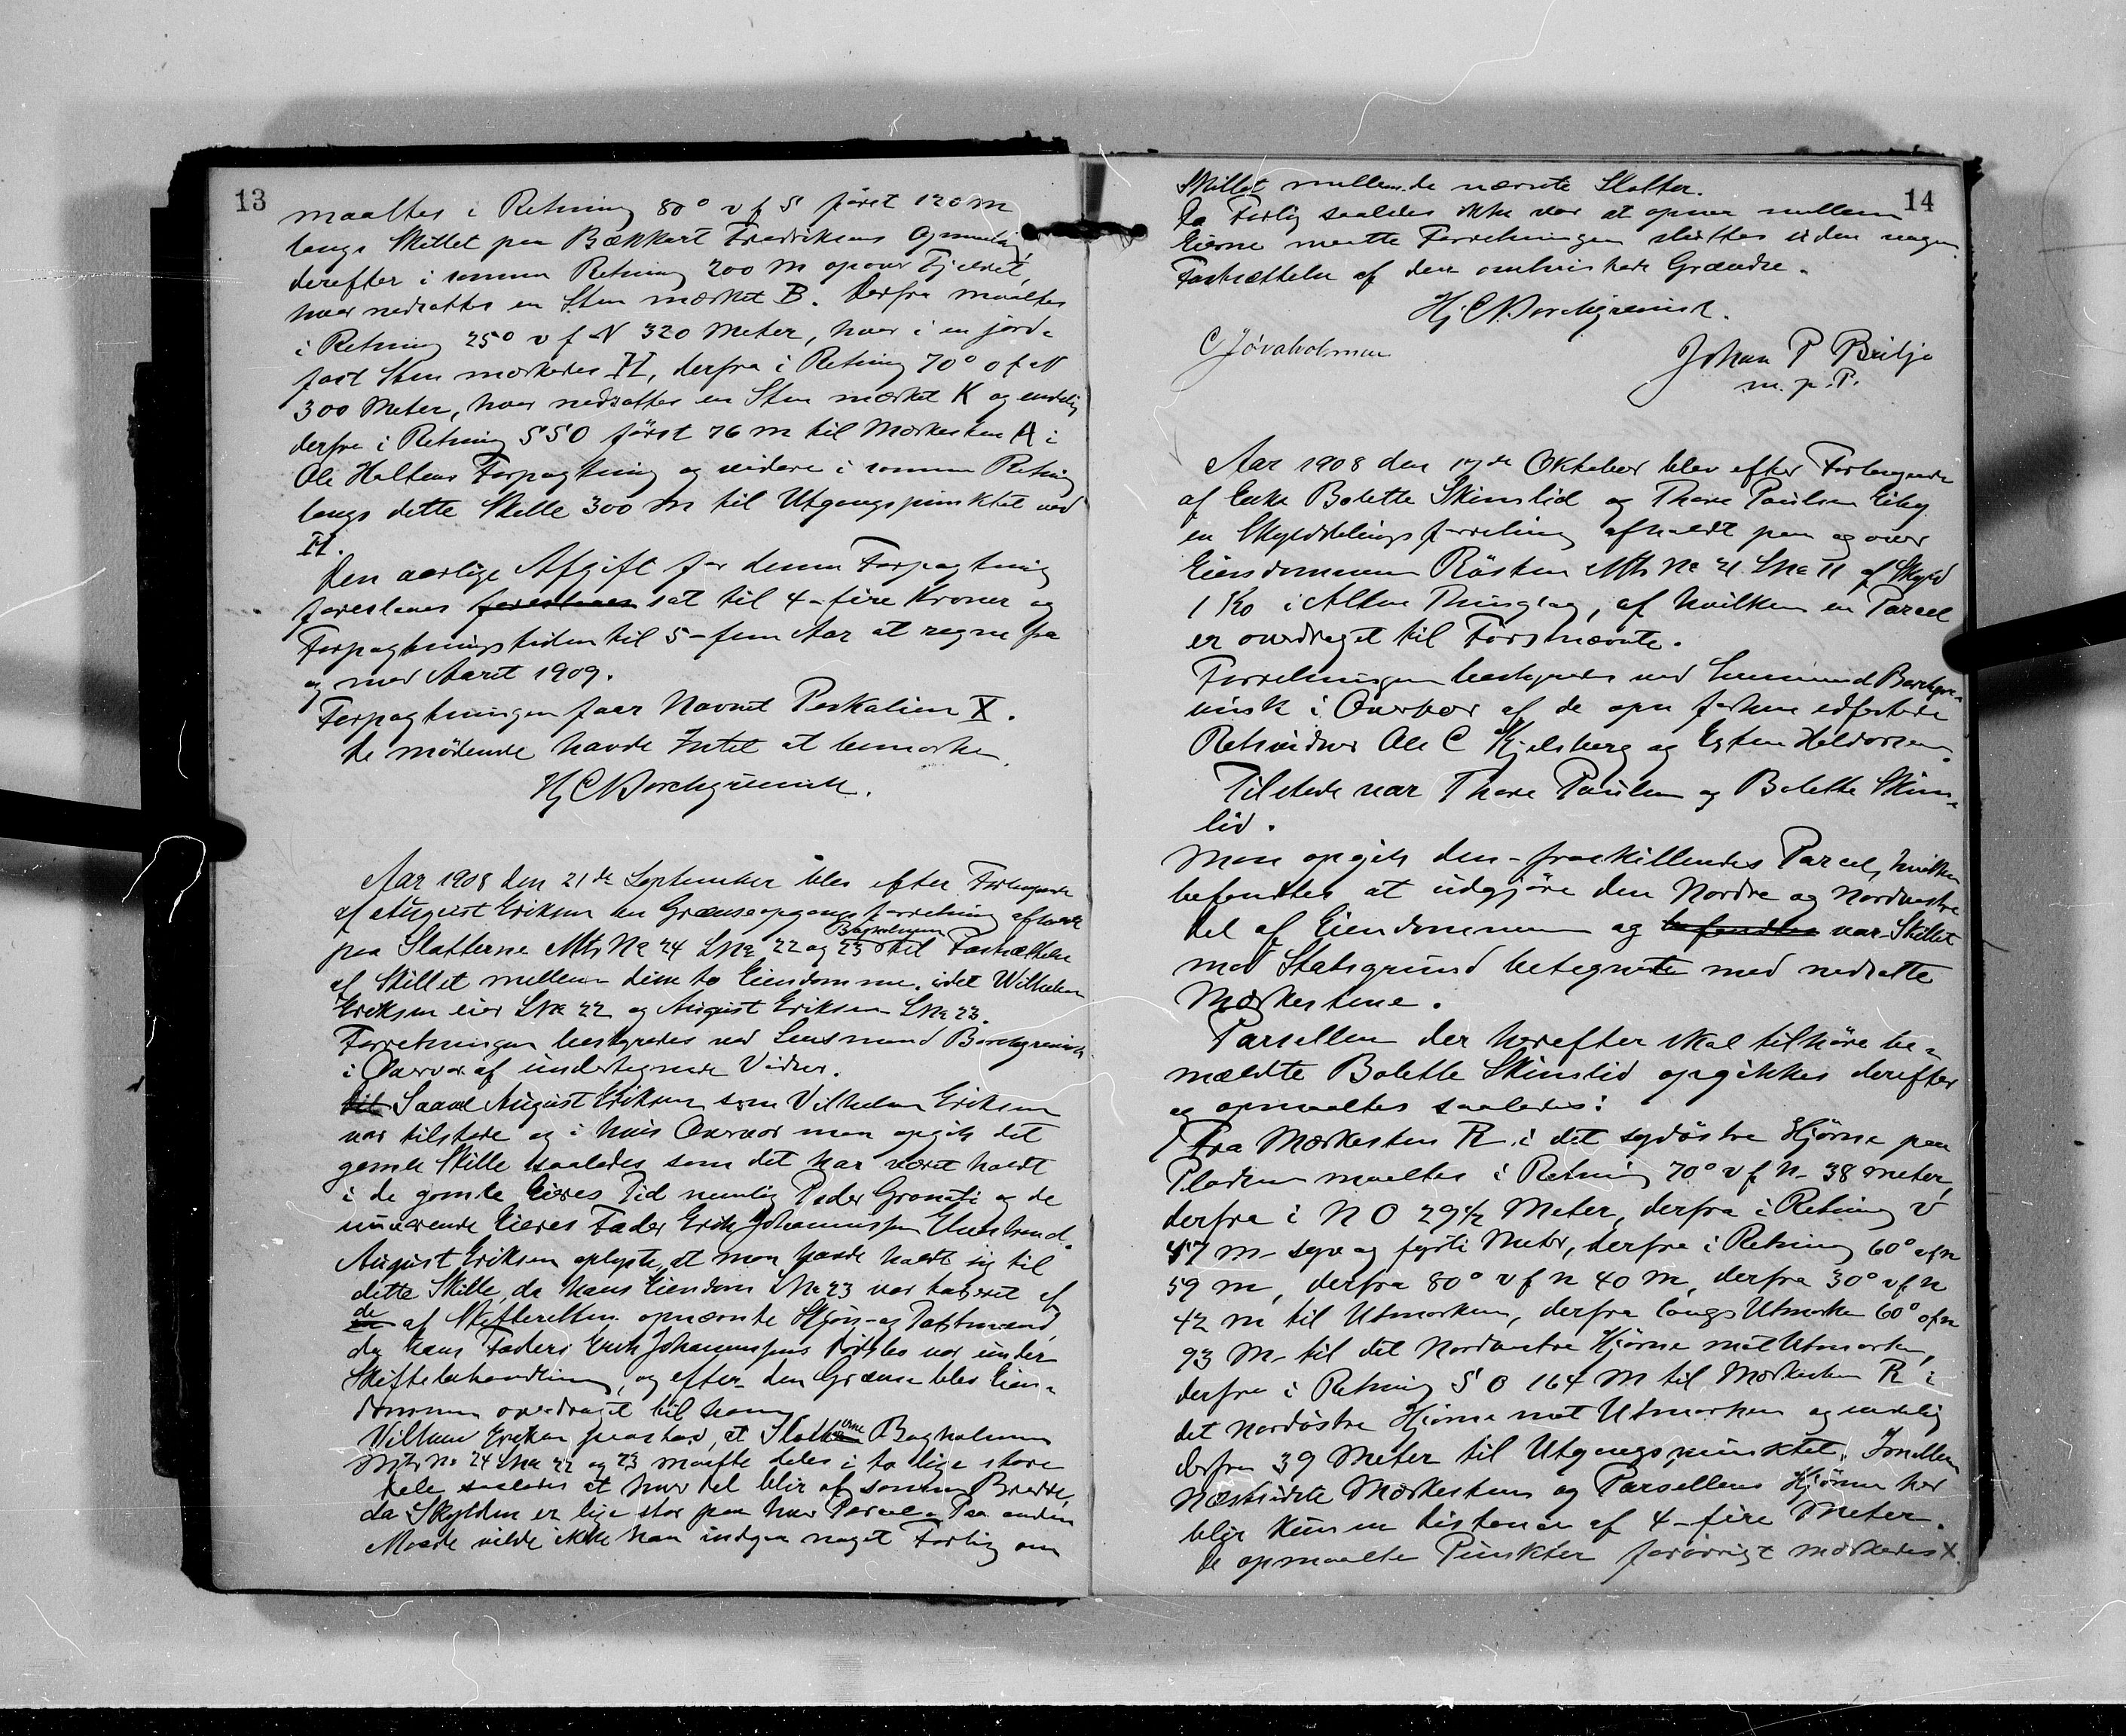 13
maaltes i Retning 80° v f S först 120 m
langs Skillet paa Bækkart Fredriksens Opmaaling,
derefter i samme Retning 200 m opover Fjeldet,
hvor nedsattes en Sten mærket B. Derfra maaltes
i Retning 25° v f N 320 Meter, hvor i en jord-
fast Sten mærkedes H, derfra i Retning 70° o f N
300 Meter, hvor nedsattes en Sten mærket K og endelig
derfra i Retning SSO först 76 m til Mærkesten A i
Ole Holtens Forpagtning og videre i samme Retning
langs dette Skille 300 m til Utgangspunktet ved
H.
Den aarlige Afgift for denne Forpagtning
foreslaaes foreslaaes sat til 4-fire Kroner og
Forpagtningstiden til 5-fem Aar at regne fra
og med Aaret 1909.
Forpagtningen faar Navnet X.
De mödende havde Intet at bemærke.
Hj C Borchgrevink.
Aar 1908 den 21de September blev efter Forlangende
af August Eriksen en Grænseopgangsforretning afholdt
Bagholmen
paa Slatterne Mts No 24 LNo 22 og 23 til Fastsættelse
af Skillet mellem disse to Eiendomme, idet Wilhelm
Eriksen eier LNo 22 og August Eriksen LNo 23.
Forretningen bestyredes ved Lensmand Borchgrevink
i Overvær af undertegnede Vidner.
til Saavel August Eriksen som Vilhelm Eriksen
var tilstede og i hvis Overvær man opgik det
gamle Skille saaledes som det har været holdt
i de gamle Eieres Tid nemlig Peder Granati og de
nuværende Eieres Fader Erik Johannessen Elvestrand.
August Eriksen oplyste, at man havde holdt sig til
dette Skille, da hans Eiendom LNo 23 var taxeret af
de
en af Skifteretten opnævnte Skjøns- og Taxtmænd,
da hans Faders Erik Johannessens Dödsbo var under
Skiftebehandling, og efter den Grænse blev Eien-
dommen overdraget til ham
Vilhelm Eriksen paastod, at Slatterne Bagholmen
Mts No 24 LNo 22 og 23 maatte deles i to lige store
Dele saaledes at hver Del blir af samme Bredde,
da Skylden er lige stor paa hver Parcel. Paa anden
Maade vilde ikke han indgaa noget Forlig om
14
Skillet mellem de nævnte Slatter.
Da Forlig saaledes ikke var at opnaa mellem
Eierne maatte Forretningen sluttes uden nogen
Fastsættelse af den omhandlede Grændse.
Hj C Borchgrevink.
C Jøvaholmen
Johan P Britjo
m. p. P.
Aar 1908 den 17de Oktober blev efter Forlangende
af Enke Bolette Skinslid og Thore Paulsen Eiby
en Skylddelingsforretning afholdt paa og over
Eiendommen Rösten Mts No 21 LNo 11 af Skyld
1 Kro i Alten Thinglag, af hvilken en Parcel
er overdraget til Førstnævnte.
Forretningen bestyredes ved Lensmand Borchgre-
vink i Overvær af de forhen edfæstede
Retsvidner Ole C Kjelsberg og Esten Heldorsen.
Tilstede var Thore Paulsen og Bolette Skins-
lid.
Man opgik den fraskillendes Parcel, hvilken
befandtes at udgjöre den Nordre og Nordvestre
Del af Eiendommen og befandtes var Skillet
med Statsgrund betegnede med nedsatte
Mærkestene.
Parsellen der herefter skal tilhöre be-
mældte Bolette Skinslid opgikkes derefter
og opmaaltes saaledes:
Fra Mærkesten R i det sydöstre Hjörne paa
Pladsen maaltes i Retning 70° v f N 38 meter,
derfra i N O 29 1/2 Meter, derfra i Retning V
47 m - syv og fyrti Meter, derfra i Retning 60° v f n
59 m, derfra 80° v f n 40 m, derfra 30° v f n
42 m til Utmarken, derfra langs Utmarken 60° o f n
93 m til det Nordvestre Hjörne mot Utmarken,
derfra i Retning S O 164 m til Mærkesten R i
det nordöstre Hjörne mot Utmarken og endelig
derfra 39 Meter til Utgangspunktet. Imellem
Næstsidste Mærkesten og Parsellens Hjörne her
blir kun en Distance af 4-fire Meter.
De opmaalte Punkter forövrigt mærkedes X.